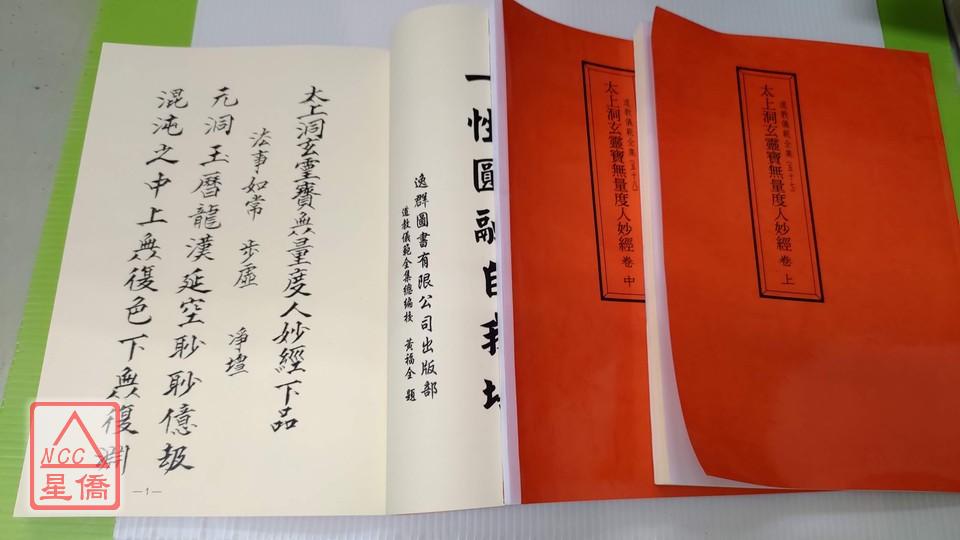 道教儀範全集(五十七)
太上洞玄靈寶無量度人妙經 卷上
道教儀範全集(五十八)
太上洞玄靈寶無量度人妙經 卷中
一性圓融自
逸群圖書有限公司出版部
道教儀範全集總編校 黃福全 題
太上洞玄靈寶無量度人妙經下品
法事如常 步虛 淨壇
元洞玉曆龍漢延空眇眇億劫
混沌之中上無復色下無復淵
—1—
NCC
星僑